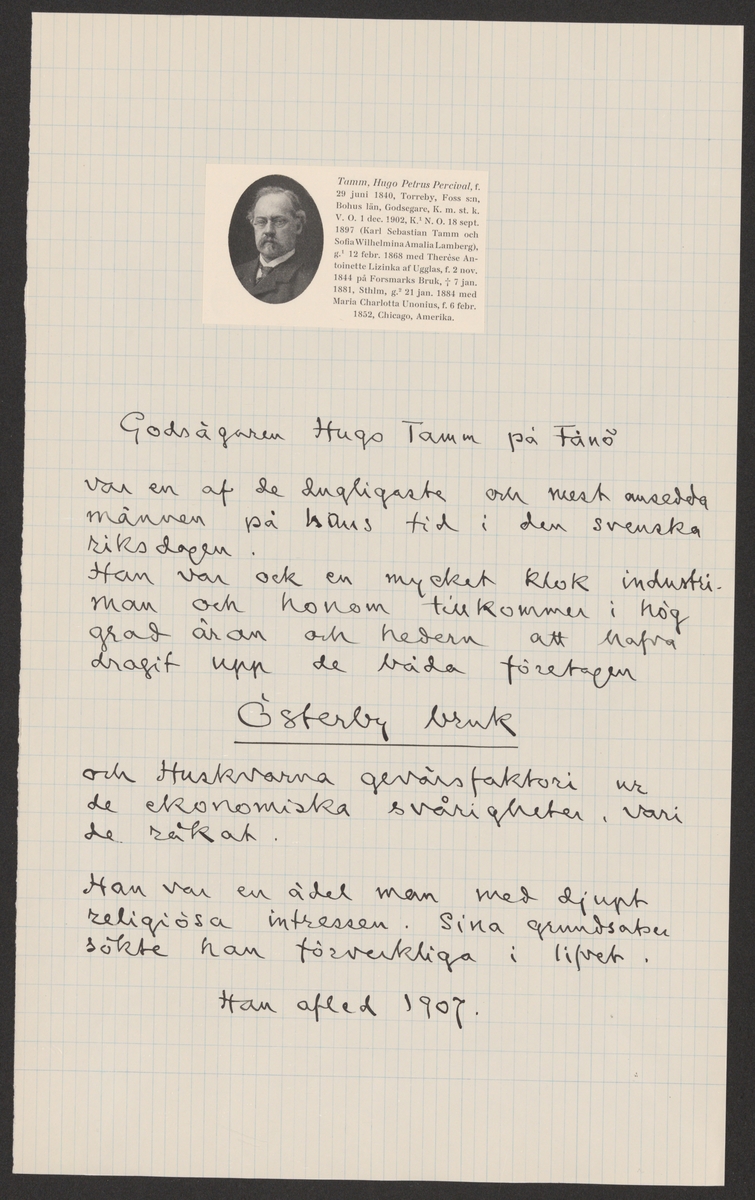 Tamm, Hugo Petrus Percival, f.
29 juni 1840, Torreby, Foss s:n,
Bohus län, Godsegare, K. m. st. k.
V. O. 1 dec. 1902, K.¹ N. O. 18 sept.
1897 (Karl Sebastian Tamm och
Sofia Wilhelmina Amalia Lamberg),
g.¹ 12 febr. 1868 med Therèse An-
toinette Lizinka af Ugglas, f. 2 nov.
1844 på Forsmarks Bruk, † 7 jan.
1881, Sthlm, g.² 21 jan. 1884 med
Maria Charlotta Unonius, f. 6 febr.
1852, Chicago, Amerika.
Godsägaren Hugo Tamm på Fånö
var en af de dugligaste och mest ansedda
männen på hans tid i den svenska
riksdagen.
Han var ock en mycket klok industri-
man och honom tillkommer i hög
grad äran och hedern att hafva
dragit upp de båda företagen
Österby bruk
och Huskvarna gevärsfaktori ur
de ekonomiska svårigheter, vari
de råkat.
Han var en ädel man med djupt
religiösa intressen. Sina grundsatser
sökte han förverkliga i lifvet.
Han afled 1907.